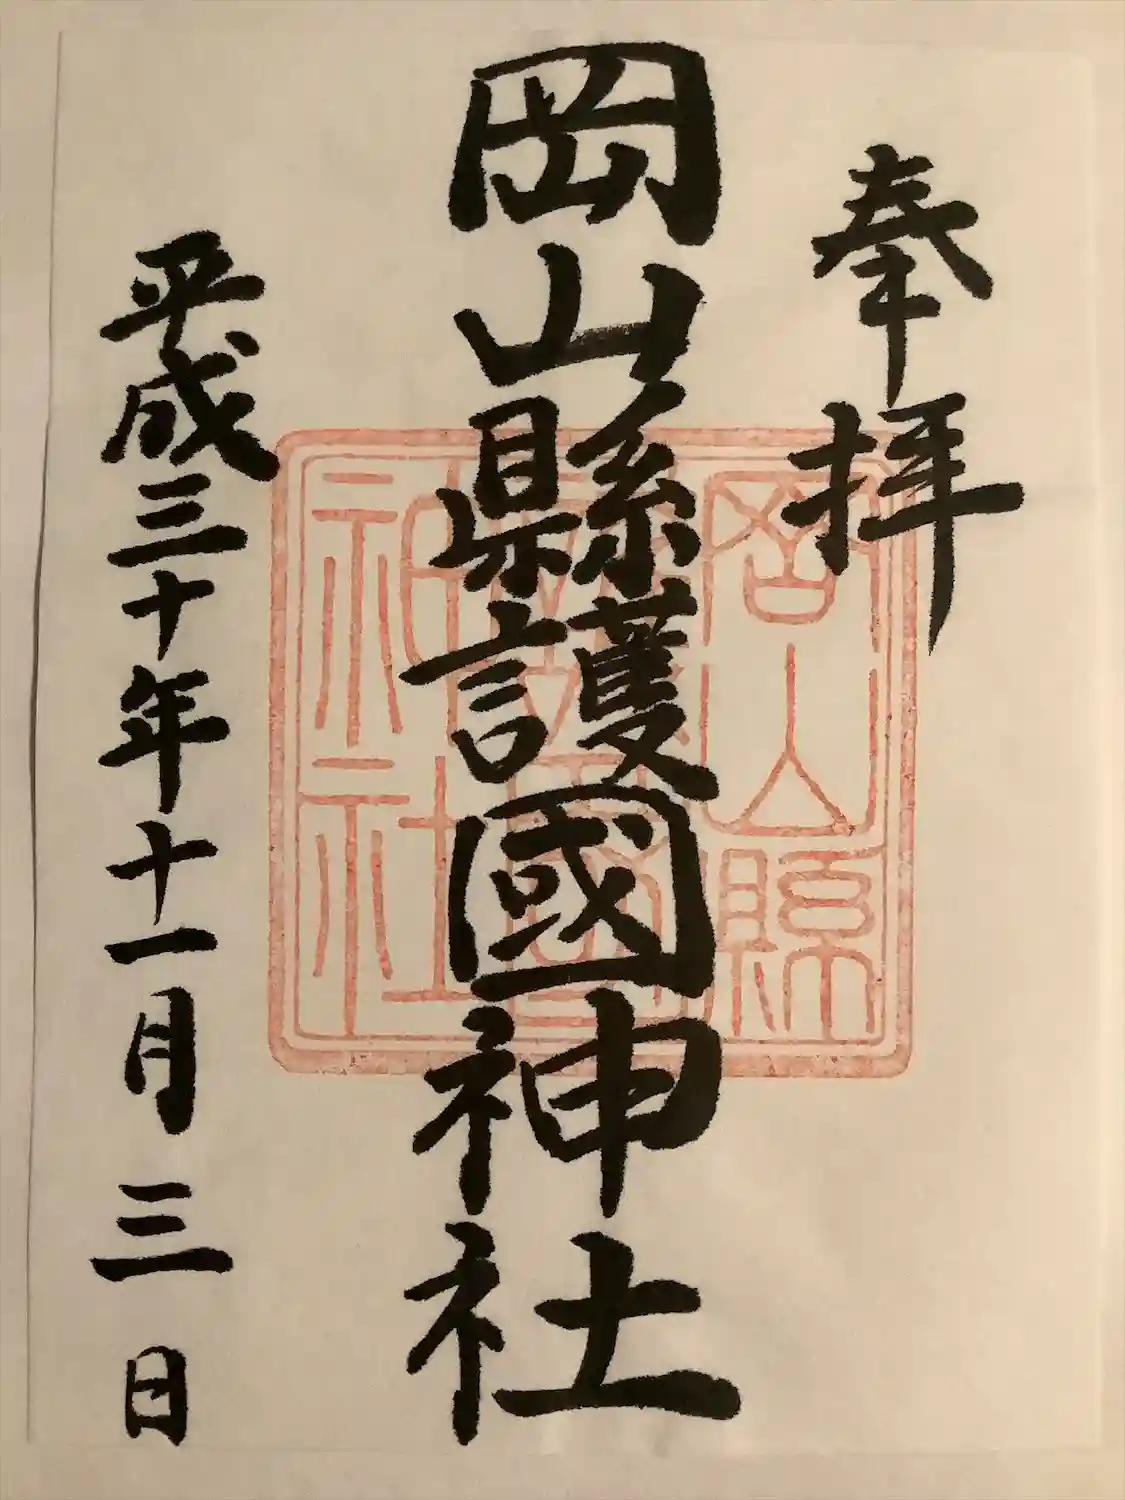 奉拝
岡山縣護國神社
岡山縣
護國
神社
平成三十年十一月三日